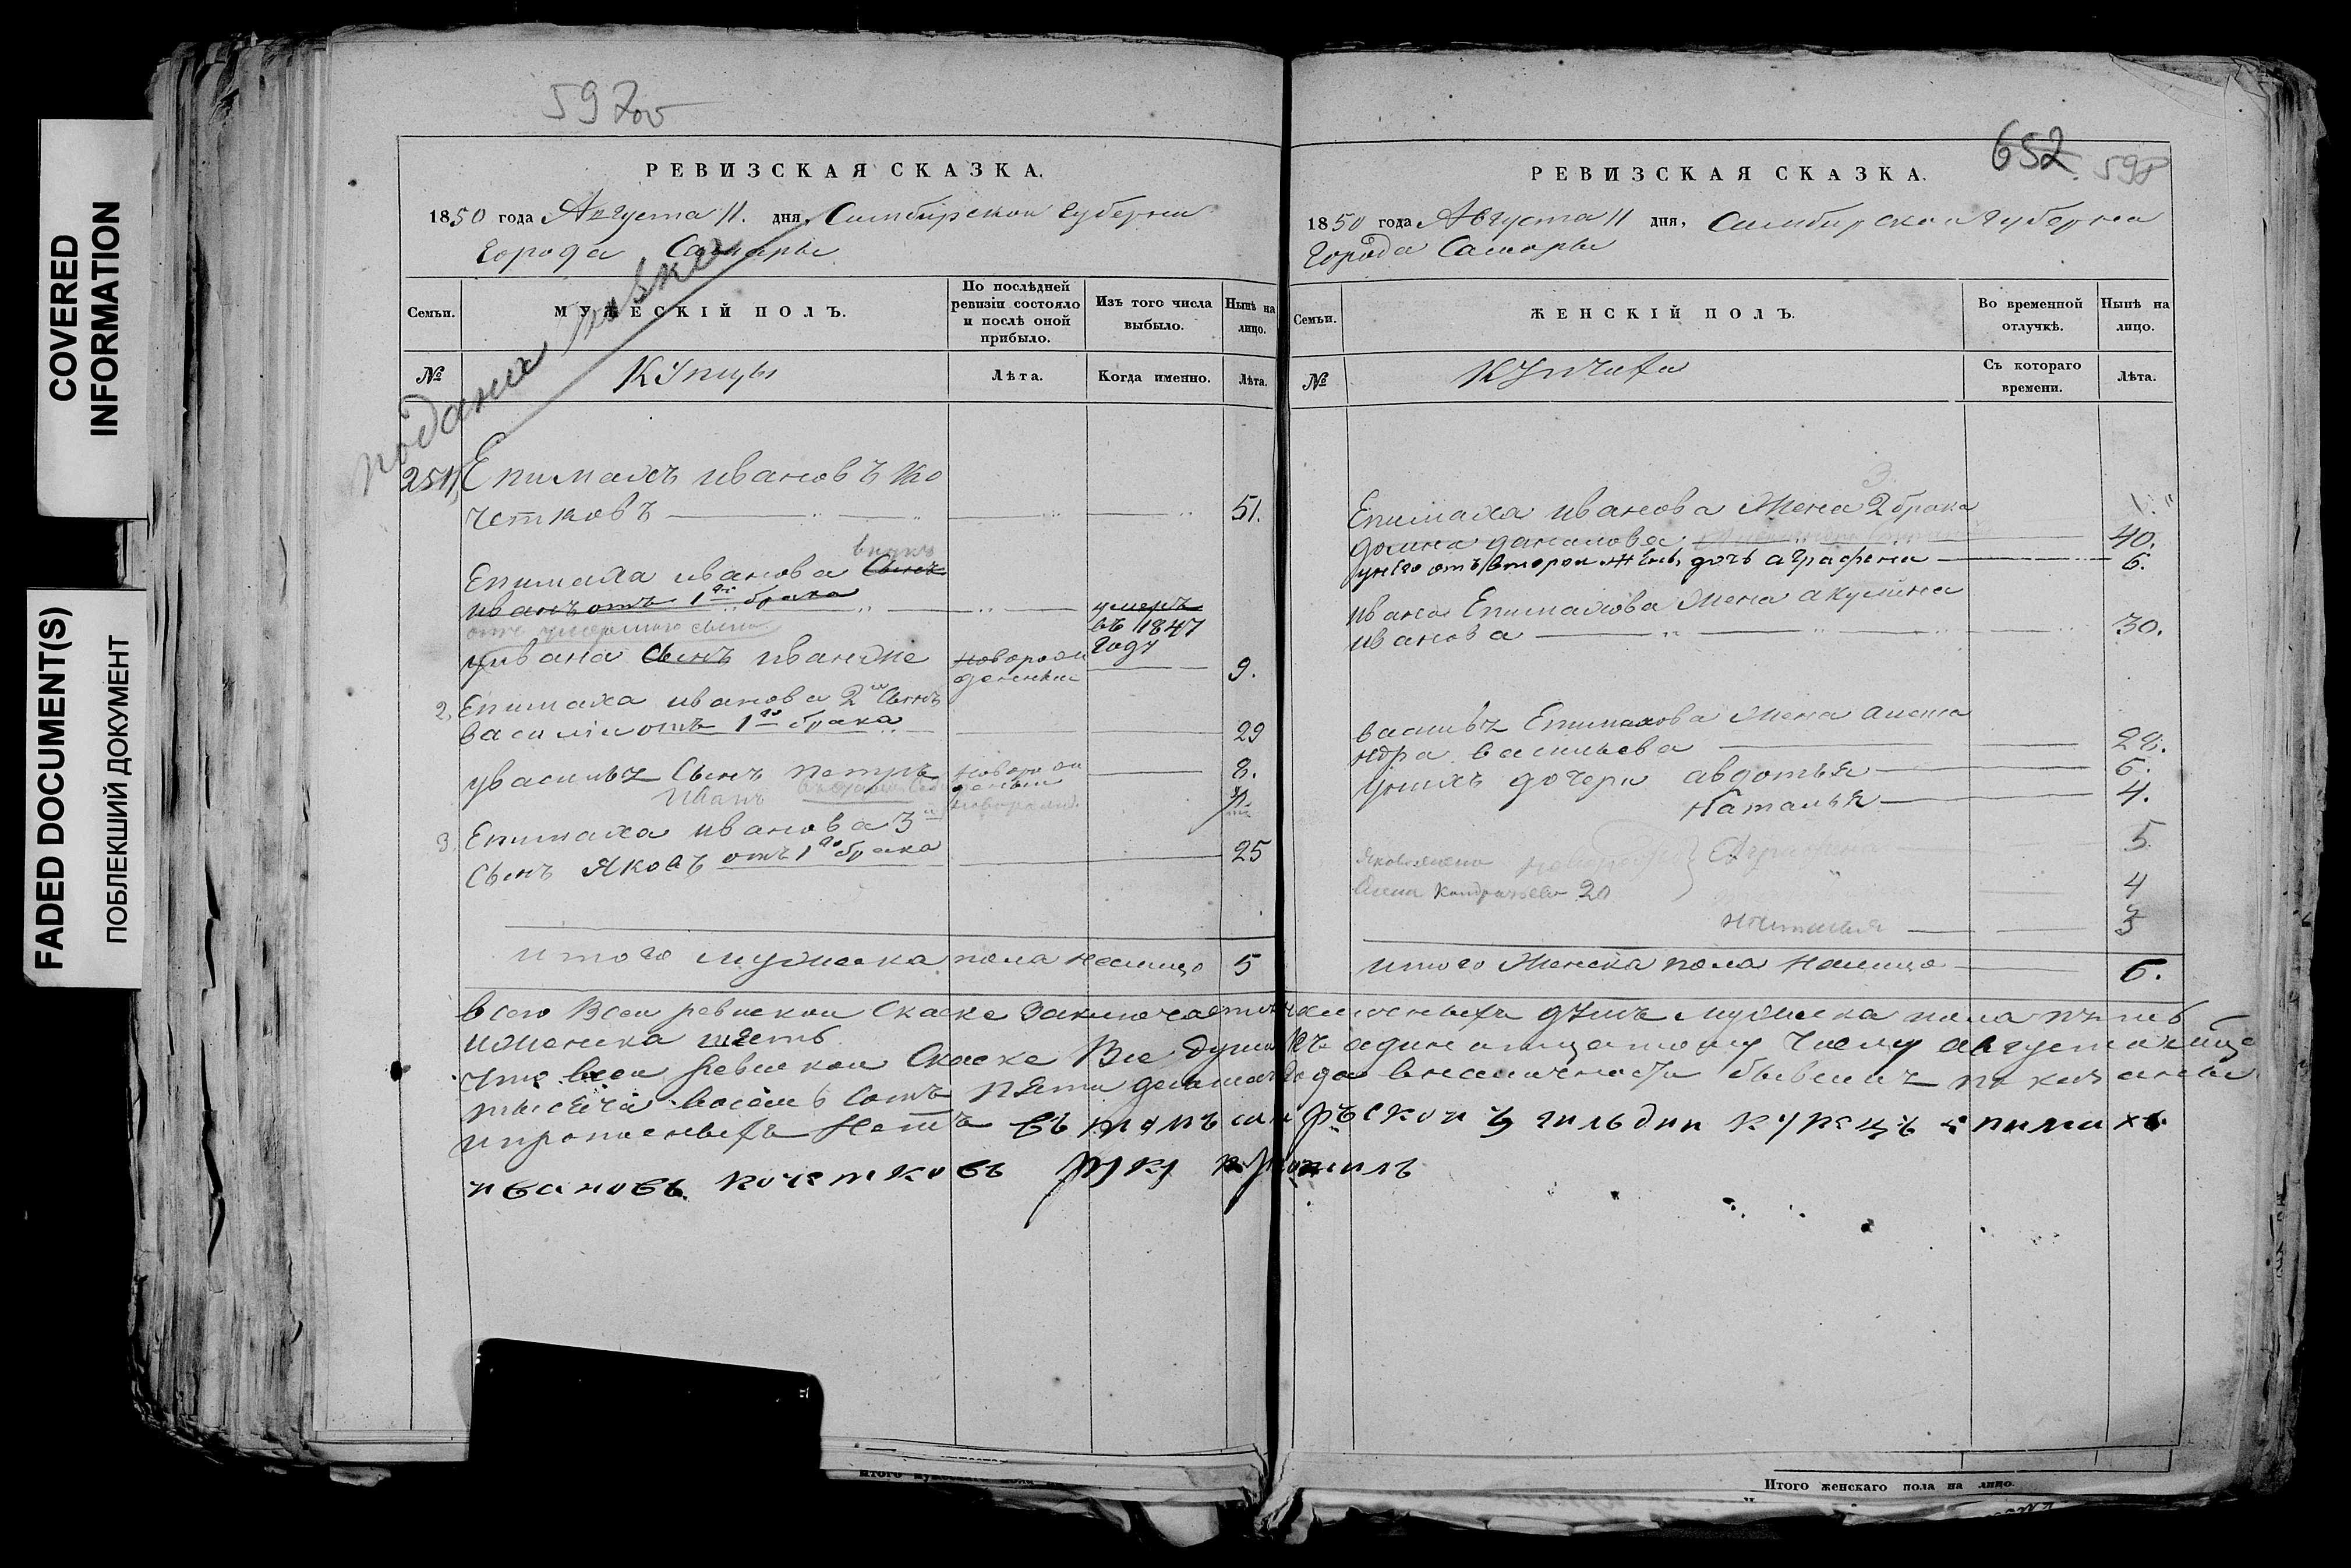 COVERED
INFORMATION
FADED DOCUMENT(S)
ПОБЛЕКШИЙ ДОКУМЕНТ
597об
РЕВИЗСКАЯ СКАЗКА.
1850 года Августа 11. дня, Симбирской губернии
города Самары
Семьи.
МУЖЕСКІЙ ПОЛЪ.
По послѣдней
ревизіи состояло
и послѣ оной
прибыло.
Изъ того числа
выбыло.
Нынѣ на
лицо.
№
Купцы
Лѣта.
Когда именно.
Лѣта.
251
Епимахъ ивановъ Ко
четковъ 51.
внукъ
Епимаха иванова Сынъ
иванъ отъ 1го брака умеръ
въ 1847
году
отъ умершаго сына
уивана Сынъ иванже новорож
денный 9.
2, Епимаха иванова 2й Сынъ
василіи отъ 1го брака 29
увасилья Сынъ петръ новорож
денный 8.
Иванъ
3, Епимаха иванова 3й
Сынъ Яковъ отъ 1го брака 25
итого мужеска пола налицо 5
652 598
РЕВИЗСКАЯ СКАЗКА.
1850 года Августа 11 дня, Симбирской губерни
города Самары
Семьи.
ЖЕНСКІЙ ПОЛЪ.
Во временной
отлучкѣ.
Нынѣ на
лицо.
№
Купчихи
Съ котораго
времени.
Лѣта.
3
Епимаха иванова Жена 2 брака
данилова 40.
унего отъ второи жены дочь аграфена 6.
ивана Епимахова Жена акулина
иванова 30.
василья Епимахова Жена алекса
ндра васильева 28.
уних дочери авдотья 6.
Наталья 4.
5
Кондратьева 20
4
Наталья 3
итого Женска пола налицо 6.
всего Всеи ревискои Скаске заключается душъ мужеска пола пять
иженска шесть
что всеи ревискои Скаске Все души къ адинатцатому Числу августа
тысеча восемь сотъ пяти десятаго года вналичности бывшия показаны
ипрописныхъ Нетъ въ томъ самаръскои 3 гильдии купецъ епимахъ
ивановъ кочетковъ руку приложилъ
Итого женскаго пола на лицо.